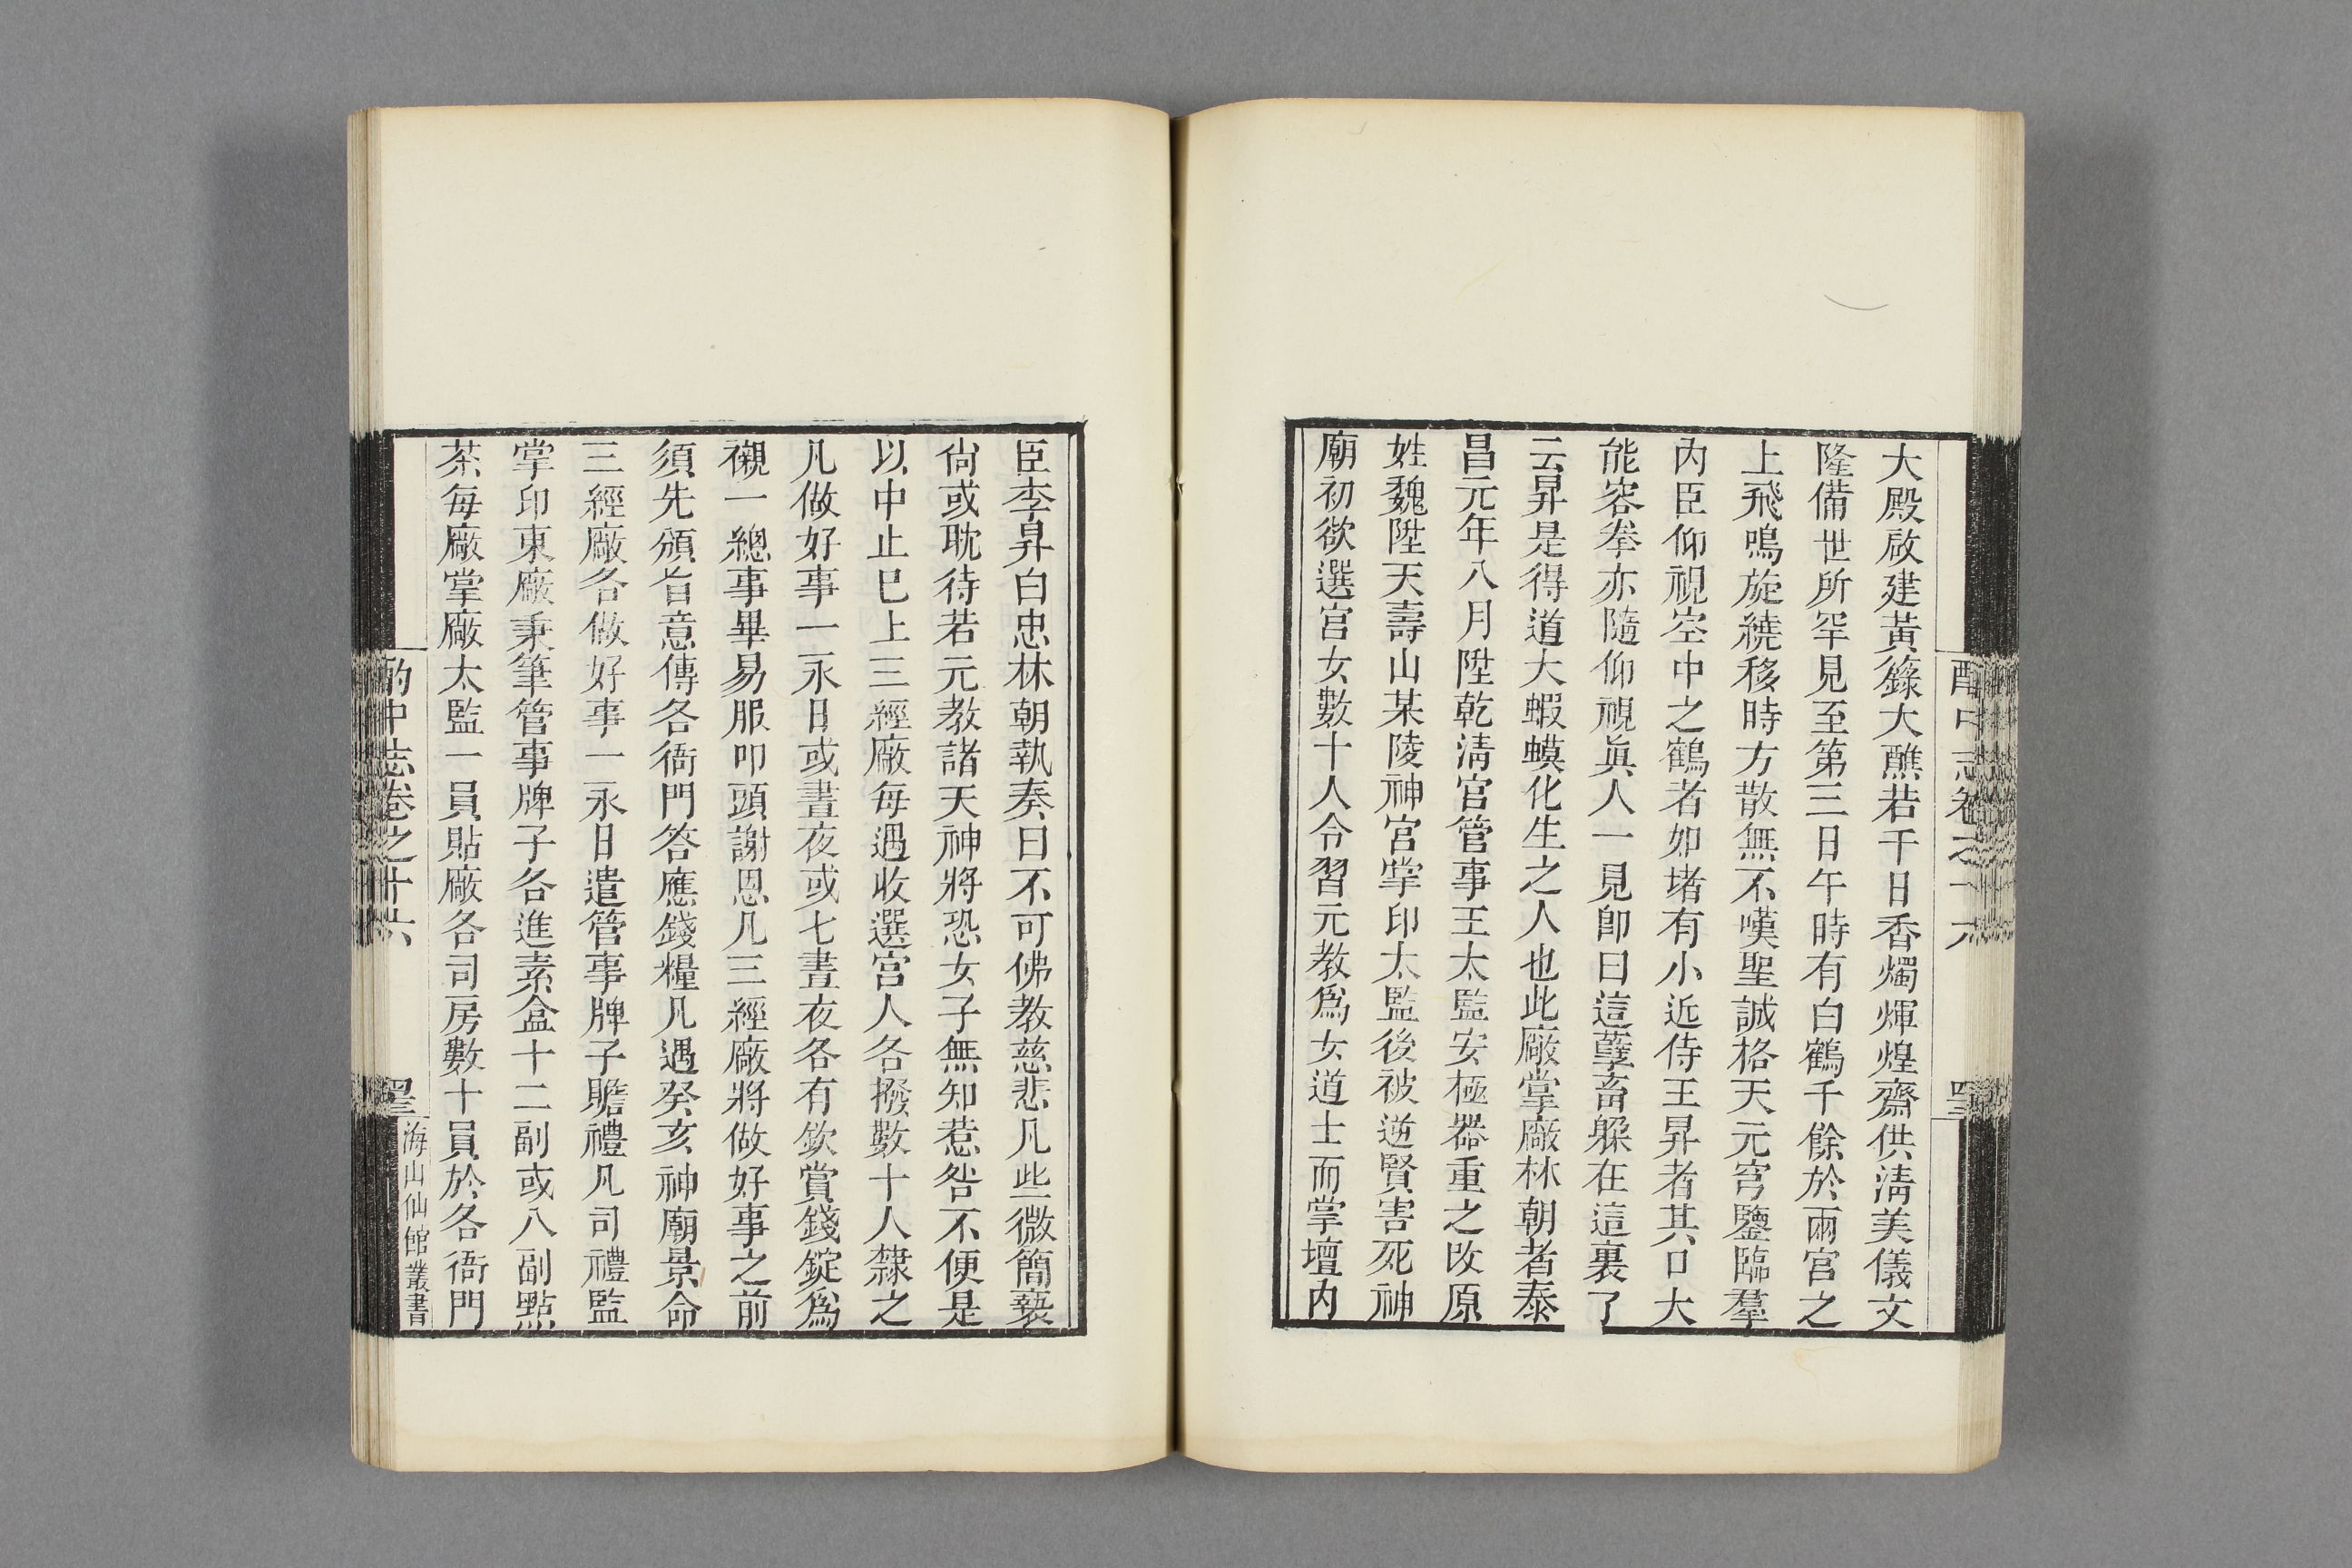 大殿啟建黃籙大醮若千日香燭煇煌齋供淸美儀文
隆備世所罕見至第三日午時有白鶴千餘於兩宮之
上飛鳴旋繞移時方散無不嘆聖誠格天元穹鑒臨羣
內臣仰視空中之鶴者如堵有小近侍王昇者其口大
能容拳亦隨仰視眞人一見卽曰這孽畜躲在這裏了
云昇是得道大蝦蟆化生之人也此廠掌廠林朝者泰
昌元年八月陞乾淸宮管事王太監安極器重之改原
姓魏陞天壽山某陵神宮掌印太監後被逆賢害死神
廟初欲選宮女數十人令習元教爲女道士而掌壇內
臣李昇白忠林朝執奏曰不可佛教慈悲凡些微簡褻
尙或耽待若元教諸天神將恐女子無知惹咎不便是
以中止已上三經廠每遇收選宮人各撥數十人隸之
凡做好事一永日或晝夜或七晝夜各有欽賞錢錠爲
襯一總事畢易服叩頭謝恩凡三經廠將做好事之前
須先頒旨意傳各衙門答應錢糧凡遇癸亥神廟景命
三經廠各做好事一永日遣管事牌子瞻禮凡司禮監
掌印東廠秉筆管事牌子各進素盒十二副或八副點
茶每廠掌廠太監一員貼廠各司房數十員於各衙門
酌中志卷之十六
海山仙館叢書